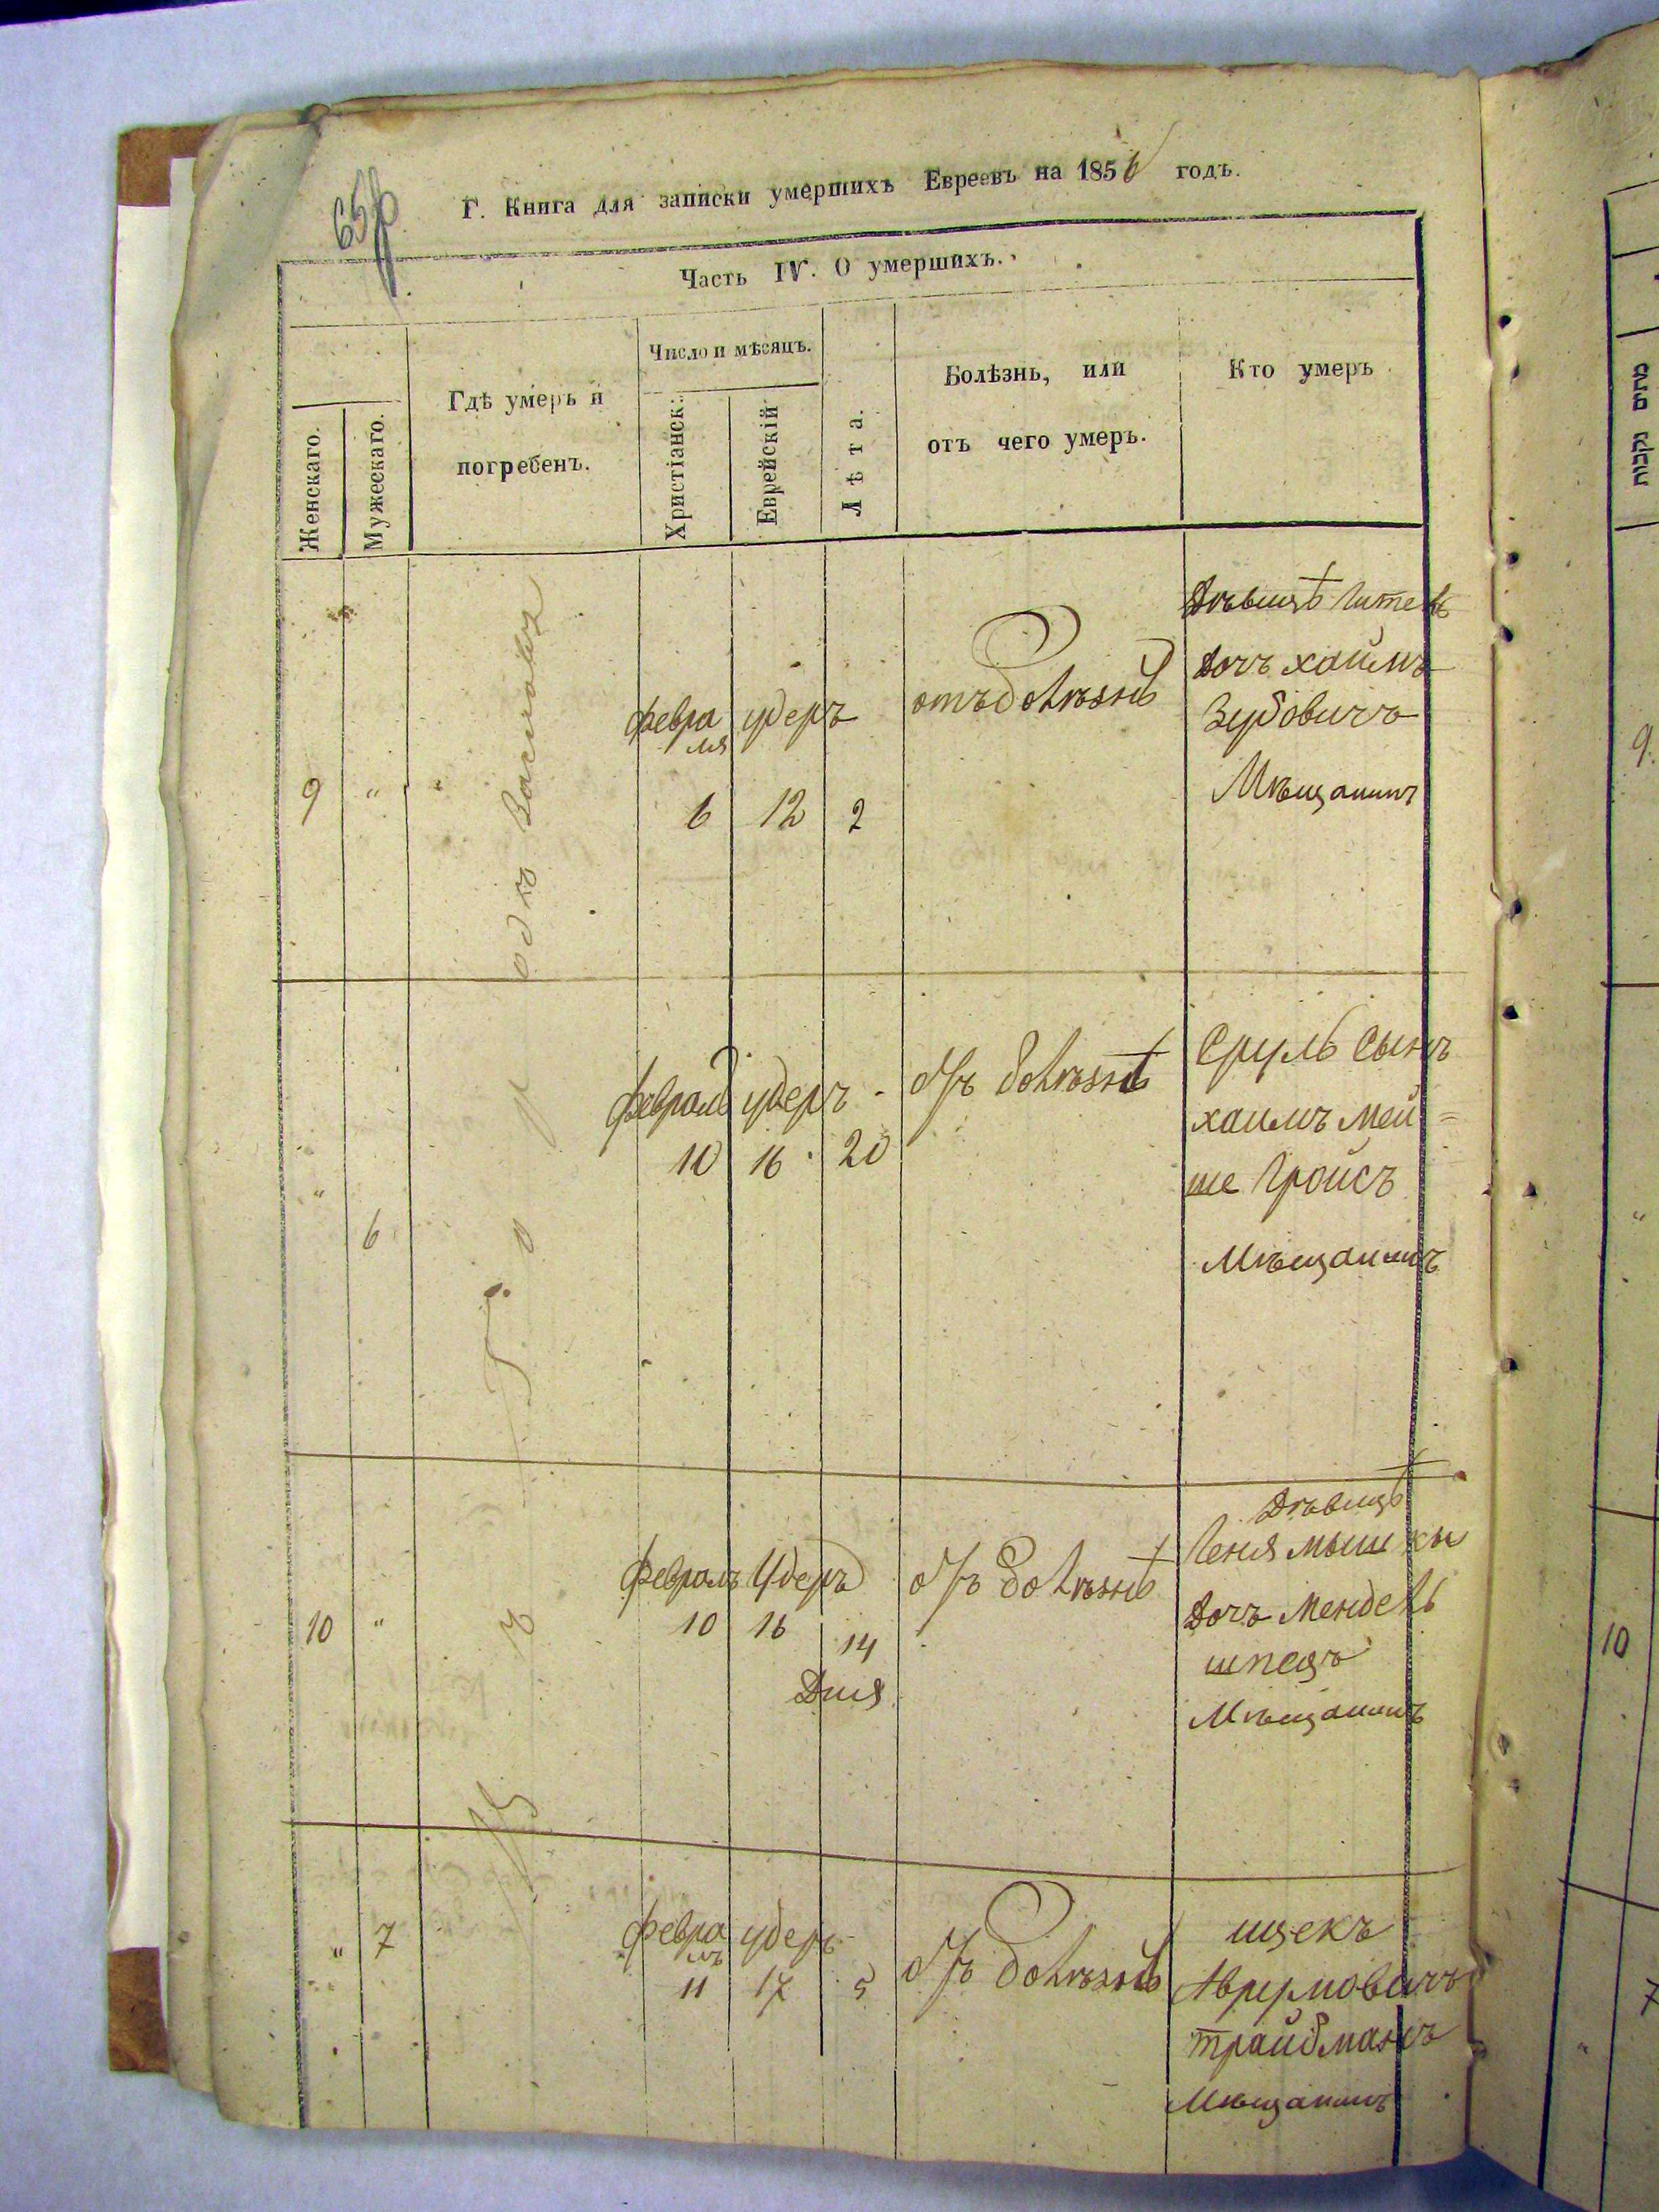 Г. Книга для записки умершихъ Евреевъ на 1856 годъ.
Часть IV. О умершихъ.
Женскаго.
Мужескаго.
Гдѣ умеръ и
погребенъ.
Число и мѣсяцъ.
Христіанск:
Еврейскій
Лѣта.
Болѣзнь, или
отъ чего умеръ.
Кто умеръ
Въ Городѣ
9 "
Февра
ля
6
удеръ
12
2
отъ болѣзнѣ
Дѣвица
дочъ Хаимъ
Зурбовичъ
Мѣщанинъ
" 6
Февраль
10
удеръ
16
20
отъ болѣзнѣ
Сруль Сынъ
хаимъ Мей=
ше Гройсъ
Мѣщанинъ
10 "
Февраль
10
Удеръ
16
14
Дня
отъ болѣзнѣ
Дѣвица
дочъ Мендель
шпецъ
Мѣщанинъ
" 7
Февра
ль
11
удеръ
17
5
отъ болѣзнѣ
ицекъ
Аврумовичъ
трайбманъ
Мѣщанинъ
מתים נקבות
9.
"
10
"
7